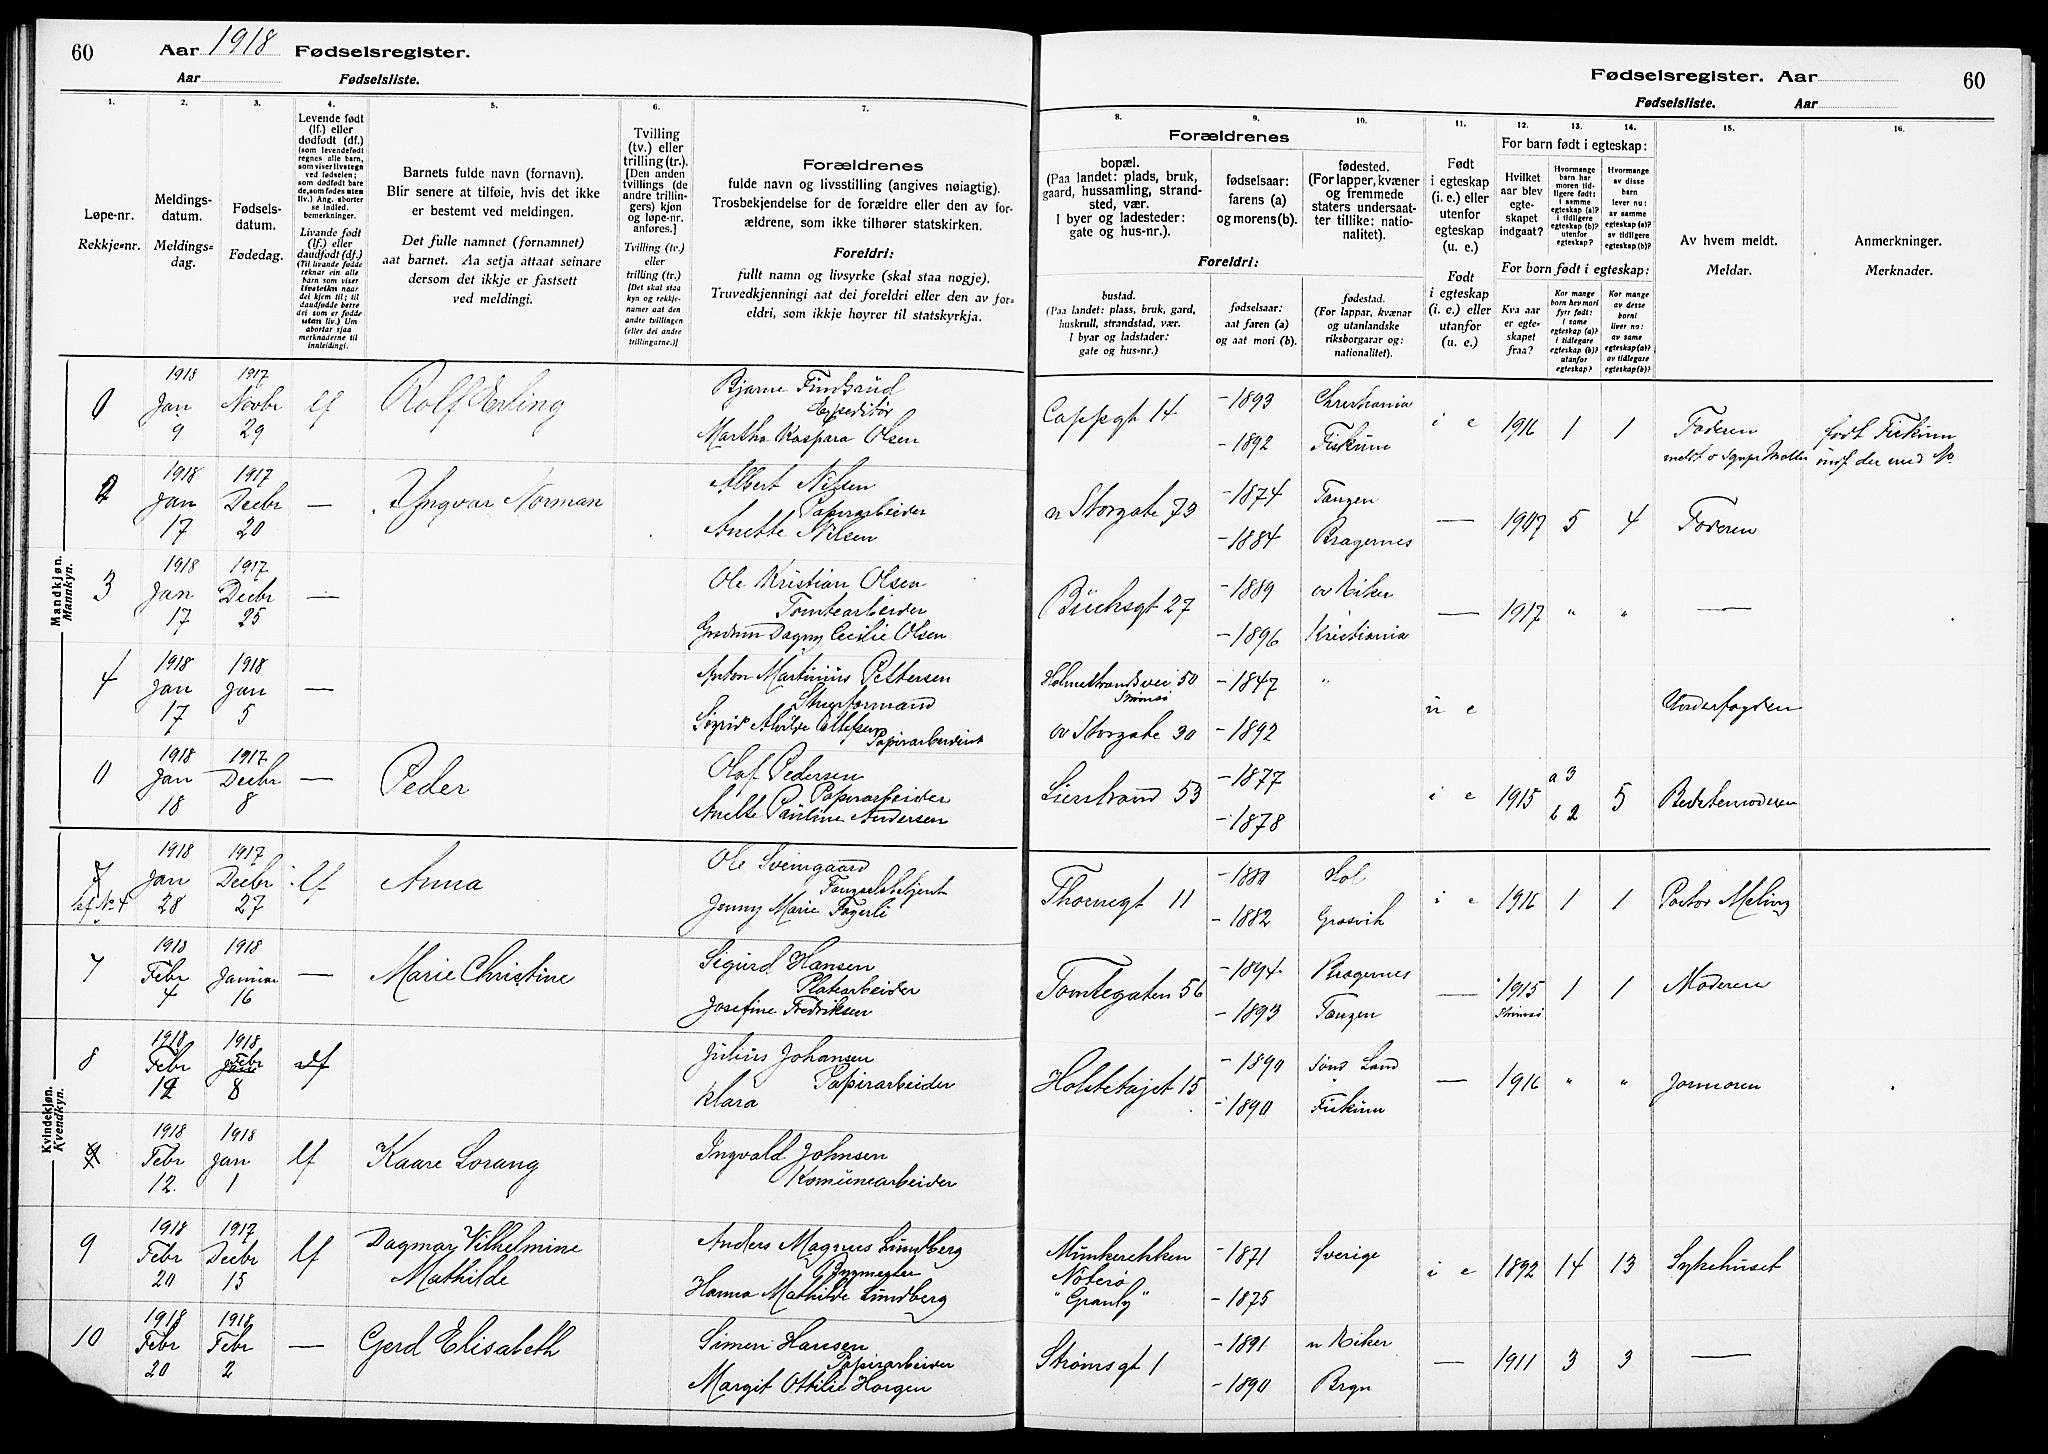 60 Aar 1918 Fødselsregister.
Aar Fødselsliste.
Fødselsregister. Aar 60
Fødselsliste. Aar
1. 2. 3. 4. 5. 6. 7. 8. 9. 10. 11. 12. 13. 14. 15. 16.
Løpe-nr.
Rekkje-nr.
Meldings-
datum.
Meldings-
dag.
Fødsels-
datum.
Fødedag.
Levende født
(lf.) eller
dødfødt (df.)
(som levendefødt
regnes alle barn,
som viser livstegn
ved fødselen;
som dødfødt bare
de, som fødes uten
liv.) Ang. aborter
se indled.
bemerkninger.
Livande født
(lf.) eller
daudfødt (df.)
(Til livande fødde
reknar ein alle
barn som viser
livsteikn naar
dei kjem til; til
daudfødde berre
dei som er fødde
utan liv.) Um
abortar sjaa
merknaderne til
innleidingi.
Barnets fulde navn (fornavn).
Blir senere at tilføie, hvis det ikke
er bestemt ved meldingen.
Det fulle namnet (fornamnet)
aat barnet. Aa setja attaat seinare
dersom det ikkje er fastsett
ved meldingi.
Tvilling
(tv.) eller
trilling (tr.).
[Den anden
tvillings (de
andre trillin-
gers) kjøn
og løpe-nr.
anføres.]
Tvilling (tv.)
eller
trilling (tr.)
[Det skal staa
kyn og rekkje-
numer aat den
andre tvillingen
(eller dei andre
trillingarne.)]
Forældrenes
fulde navn og livsstilling (angives nøiagtig).
Trosbekjendelse for de forældre eller den av for-
ældrene, som ikke tilhører statskirken.
Foreldri:
fullt namn og livsyrke (skal staa nøgje).
Truvedkjenningi aat dei foreldri eller den av for-
eldri, som ikkje høyrer til statskyrkja.
Forældrenes
bopæl.
(Paa landet: plads, bruk,
gaard, hussamling, strand-
sted, vær.
I byer og ladesteder:
gate og hus-nr.).
fødselsaar:
farens (a)
og morens (b).
fødested.
(For lapper, kvæner
og fremmede
staters undersaat-
ter tillike: natio-
nalitet).
Foreldri:
bustad.
(Paa landet: plass, bruk, gard,
huskrull, strandstad, vær.
I byar og ladstader:
gate og hus-nr.)
fødselsaar:
aat faren (a)
og aat mori (b).
fødestad.
(For lappar, kvænar
og utanlandske
riksborgarar og:
nationalitet).
Født
i egteskap
(i. e.) eller
utenfor
egteskap
(u. e.)
Født
i egteskap
(i. e.) eller
utanfor
egteskap
(u. e.)
For barn født i egteskap:
Hvilket
aar blev
egte-
skapet
indgaat?
Hvormange
barn har
moren tid-
ligere født:
i samme
egteskap (a)?
i tidligere
egteskap (b)?
utenfor
egteskap?
Hvormange
av disse
barn
lever nu:
av samme
egteskap (a)?
av tidligere
egteskap (b)?
For born født i egteskap:
Kva aar
er egte-
skapet
fraa?
Kor mange
born hev mori
fyrr født:
i same
egteskap (a)?
i tidlegare
egteskap (b)?
utanfor
egteskap?
Kor mange
av desse
borni
liver no:
av same
egteskap (a)?
av tidlegare
egteskap (b)?
Av hvem meldt.
Meldar.
Anmerkninger.
Merknader.
Mandkjøn.
Mannkyn.
1918 1917 Bjarne Findsrud 1893 Christiania
Jan Novbr lf Rolf Erling Expeditør Cappsgt 14 i e 1916 1 1 Faderen født Fiskum
9 29 Martha Kaspara Olsen 1892 Fiskum
2 1918 1917 Albert Nilsen 1874 Tangen
Jan Decbr — Yngvar Norman Papirarbeider n Storgate 73 — 1907 5 4 Faderen
17 20 Anette Nilsen 1884 Bragernes
3 1918 1917 Ole Kristian Olsen 1889 øv Eiker
Jan Decbr — Tomtearbeider Buchsgt 27 — 1917 " " —
17 25 Gudrun Dagny Cecilie Olsen 1896 Kristiania
4 1918 1918 Anton Martinius Pettersen Holmestrandsvei 50 Strømsø 1847 "
Jan Jan — u e
17 5 Sigrid Alvilde Ellefsen Papirarbeiderst øv Storgate 30 1892
1918 1917 Olaf Pedersen 1877 a 3
Jan Decbr — Peder Papirarbeider Lierstrand 53 i e 1915 b 2 5 Bedstemoderen
18 8 Anette Pauline Andersen 1878
Kvindekjøn.
Kvendkyn.
1918 1917 Ole Sveingaard Hol
Jan Decbr lf Anna Fængselsbetjent Thornegt 11 i e 1916 1 1 Pastor Meling
28 27 Jenny Marie Fagerli 1882 Grasvik
7 1918 1918 Sigurd Hansen 1894 Bragernes
Febr Januar — Marie Christine Platearbeider Tomtegaten 56 — 1915 Strømsø 1 1 Moderen
4 16 Josefine Fredriksen 1893 Tangen
8 1918 1918 Julius Johansen 1890 Søns Land
Febr Febr df Papirarbeider 15 — 1916 " " Jormoren
12 8 Klara 1890 Fiskum
1918 1918 Ingvald Johnsen
Febr Jan lf Kaare Lorang Komunearbeider
12. 1
9 1918 1917 Dagmar Vilhelmine Anders Magnus Lundberg Munkerekken 1871 Sverige
Febr Decbr lf Mathilde Nøterø i e 1892 14 13 Sykehuset
20 15 Hanna Mathilde Lundberg "Granly" 1875
10 1918 1918 Simen Hansen 1891 n Eiker
Febr Febr — Gerd Elisabeth Papirarbeider Strømsgt 1 — 1911 3 3 —
20 2 Margit Ottilie Horgen 1890 Brgn